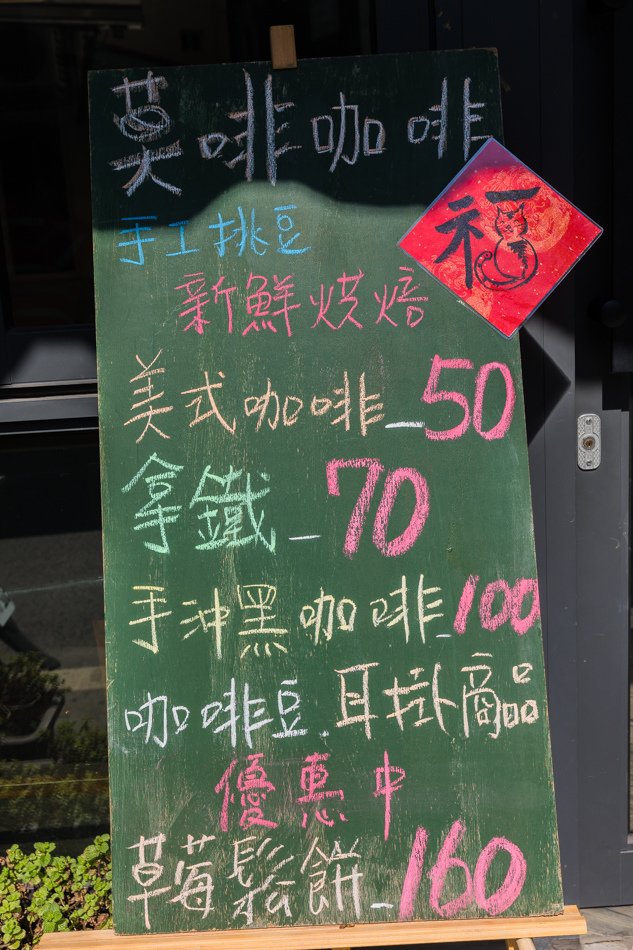 莫啡咖啡
福
手工挑豆
新鮮烘焙
美式咖啡_50
拿鐵_70
手沖黑咖啡_100
咖啡豆.耳掛商品
優惠中
草莓鬆餅_160